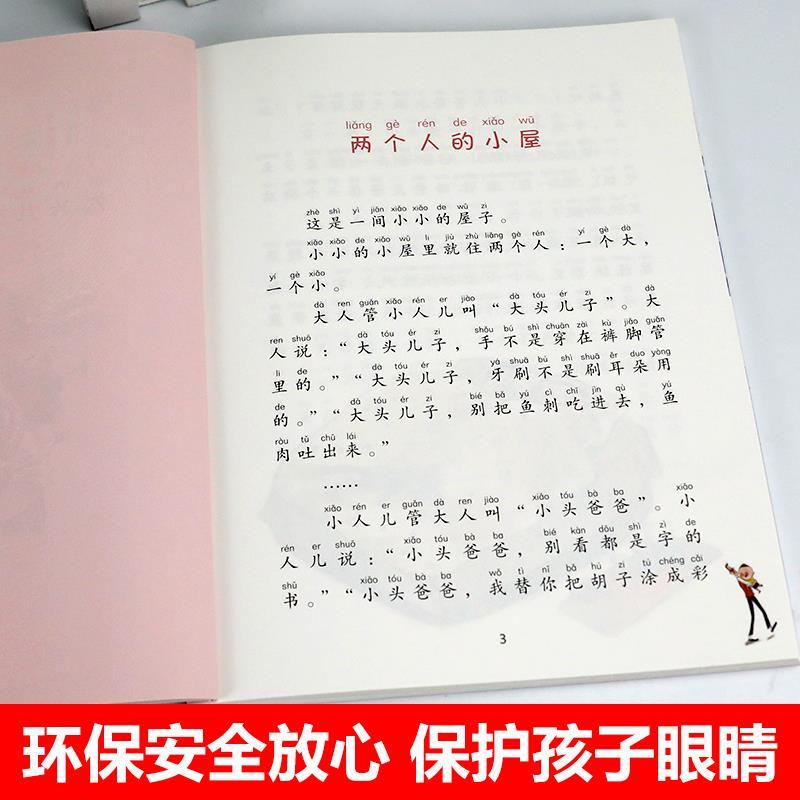 liǎng gè rén de xiǎo wū
两个人的小屋
zhè shì yì jiān xiǎo xiǎo de wū zi
这是一间小小的屋子。
xiǎo xiǎo de xiǎo wū li jiù zhù liǎng gè rén yí gè dà
小小的小屋里就住两个人：一个大，
yí gè xiǎo
一个小。
dà ren guǎn xiǎo rén er jiào dà tóu ér zi dà
大人管小人儿叫“大头儿子”。大
ren shuō dà tóu ér zi shǒu bú shì chuān zài kù jiǎo guǎn
人说：“大头儿子，手不是穿在裤脚管
li de dà tóu ér zi yá shuā bú shì shuā ěr duo yòng
里的。”“大头儿子，牙刷不是刷耳朵用
de dà tóu ér zi bié bǎ yú cì chī jìn qù yú
的。”“大头儿子，别把鱼刺吃进去，鱼
ròu tǔ chū lái
肉吐出来。”
……
xiǎo rén er guǎn dà ren jiào xiǎo tóu bà ba xiǎo
小人儿管大人叫“小头爸爸”。小
rén er shuō xiǎo tóu bà ba bié kàn dōu shì zì de
人儿说：“小头爸爸，别看都是字的
shū xiǎo tóu bà ba wǒ tì nǐ bǎ hú zi tú chéng cǎi
书。”“小头爸爸，我替你把胡子涂成彩
3
环保安全放心 保护孩子眼睛